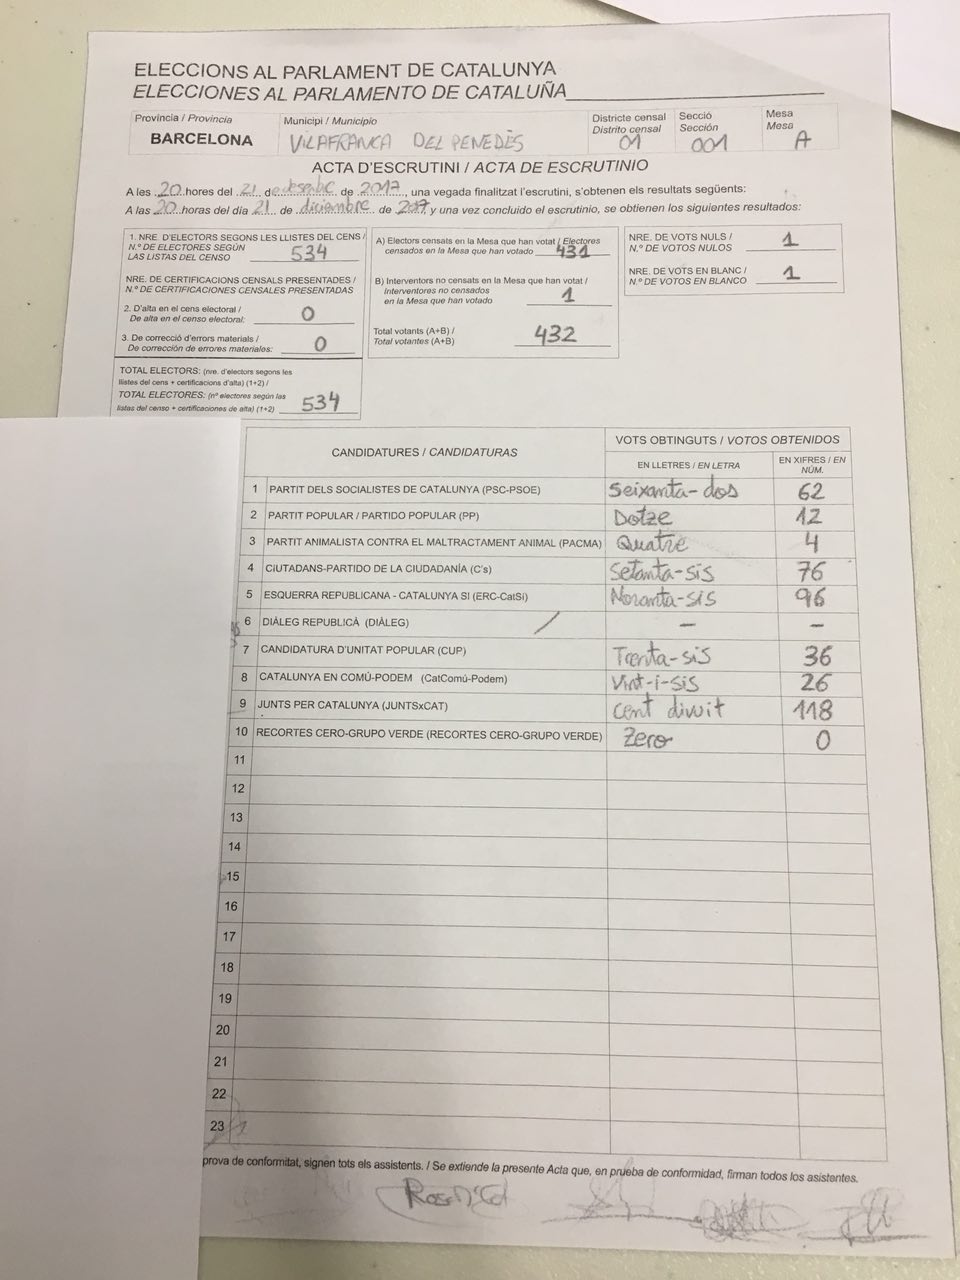 ELECCIONS AL PARLAMENT DE CATALUNYA
ELECCIONES AL PARLAMENTO DE CATALUÑA
Província / Provincia
BARCELONA
Municipi / Municipio
VILAFRANCA DEL PENEDÈS
Districte censal
Distrito censal
01
Secció
Sección
001
Mesa
Mesa
A
ACTA D'ESCRUTINI / ACTA DE ESCRUTINIO
A les 20 hores del 21 de desembre de 2017, una vegada finalitzat l'escrutini, s'obtenen els resultats següents:
A las 20 horas del día 21 de diciembre de 2017 y una vez concluido el escrutinio, se obtienen los siguientes resultados:
1. NRE. D'ELECTORS SEGONS LES LLISTES DEL CENS /
N.º DE ELECTORES SEGÚN
LAS LISTAS DEL CENSO 534
NRE. DE CERTIFICACIONS CENSALS PRESENTADES /
N.º DE CERTIFICACIONES CENSALES PRESENTADAS
2. D'alta en el cens electoral /
De alta en el censo electoral: 0
3. De correcció d'errors materials /
De corrección de errores materiales: 0
TOTAL ELECTORS: (nre. d'electors segons les
llistes del cens + certificacions d'alta) (1+2) /
TOTAL ELECTORES: (nº electores según las
listas del censo + certificaciones de alta) (1+2) 534
A) Electors censats en la Mesa que han votat / Electores
censados en la Mesa que han votado 431
B) Interventors no censats en la Mesa que han votat /
Interventores no censados
en la Mesa que han votado 1
Total votants (A+B) /
Total votantes (A+B) 432
NRE. DE VOTS NULS /
N.º DE VOTOS NULOS 1
NRE. DE VOTS EN BLANC /
N.º DE VOTOS EN BLANCO 1
CANDIDATURES / CANDIDATURAS
VOTS OBTINGUTS / VOTOS OBTENIDOS
EN LLETRES / EN LETRA
EN XIFRES / EN
NÚM.
1 PARTIT DELS SOCIALISTES DE CATALUNYA (PSC-PSOE) Seixanta-dos 62
2 PARTIT POPULAR / PARTIDO POPULAR (PP) Dotze 12
3 PARTIT ANIMALISTA CONTRA EL MALTRACTAMENT ANIMAL (PACMA) Quatre 4
4 CIUTADANS-PARTIDO DE LA CIUDADANÍA (C's) Setanta-sis 76
5 ESQUERRA REPUBLICANA - CATALUNYA SI (ERC-CatSí) Noranta-sis 96
6 DIÀLEG REPUBLICÀ (DIÀLEG) / – –
7 CANDIDATURA D'UNITAT POPULAR (CUP) Trenta-sis 36
8 CATALUNYA EN COMÚ-PODEM (CatComú-Podem) Vint-i-sis 26
9 JUNTS PER CATALUNYA (JUNTSxCAT) cent divuit 118
10 RECORTES CERO-GRUPO VERDE (RECORTES CERO-GRUPO VERDE) Zero 0
11
12
13
14
15
16
17
18
19
20
21
22
23
prova de conformitat, signen tots els assistents. / Se extiende la presente Acta que, en prueba de conformidad, firman todos los asistentes.